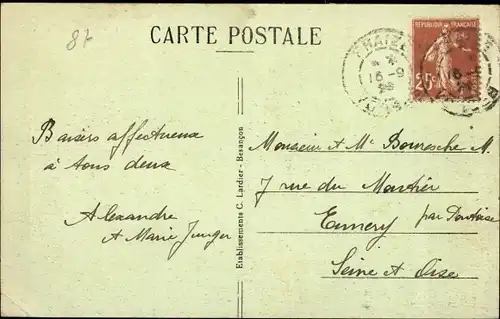 87
CARTE POSTALE
FRAIZE
16 - 9
25c
Baisers affectueux
à tous deux
Alexandre
et Marie Junger
Etablissements C. Lardier - Besançon
Monsieur et Me Bouresche M.
7 rue du Moutier
Ennery par Pontoise
Seine et Oise